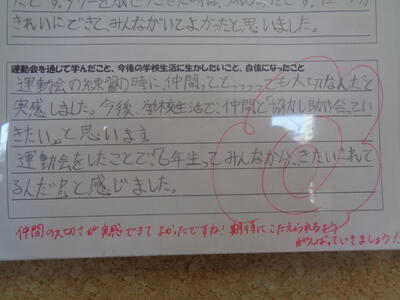 きれいにできて、みんながいてよかったと思いました。
運動会を通して学んだこと、今後の学校生活に生かしたいこと、自信になったこと
運動会の練習の時に、仲間ってとっっっっても大切なんだと
実感しました。今後、学校生活で、仲間と「協力し助け会ってい
きたい。」と思います。
運動会をしたことで、「6年生ってみんなから、きたいされて
るんだ。」と感じました。
仲間の大切さが実感できてよかったですね!期待にこたえられるよう
がんばっていきましょう!!